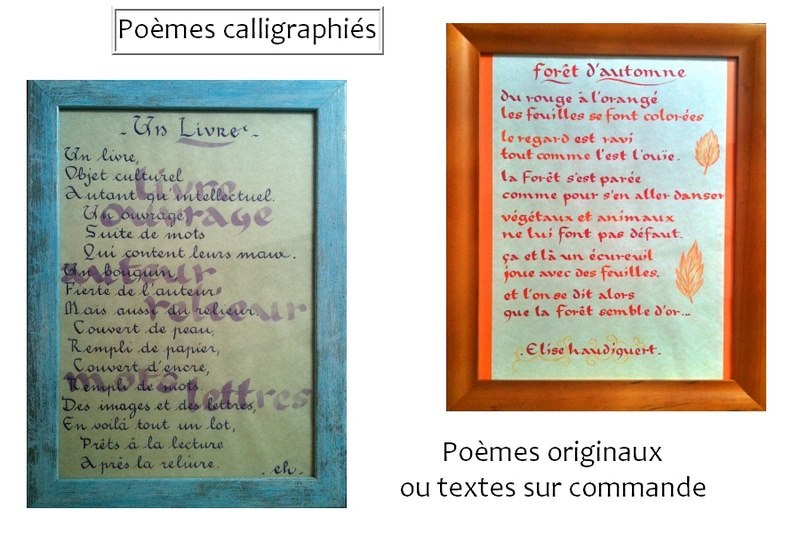 Poèmes calligraphiés
- Un Livre -
Un livre,
Objet culturel
Autant qu'intellectuel.
Un ouvrage,
Suite de mots
Qui content leurs maux.
Un bouquin,
Fierté de l'auteur,
Mais aussi du relieur.
Couvert de peau,
Rempli de papier,
Couvert d'encre,
Rempli de mots.
Des images et des lettres,
En voilà tout un lot,
Prêts à la lecture
Après la reliure.
.eh.
livre
ouvrage
auteur
relieur
mots
lettres
forêt d'automne
du rouge à l'orangé
les feuilles se font colorées
le regard est ravi
tout comme l'est l'ouïe.
la forêt s'est parée
comme pour s'en aller danser
végétaux et animaux
ne lui font pas défaut.
ça et là un écureuil
joue avec des feuilles.
et l'on se dit alors
que la forêt semble d'or...
.Elise haudiquert.
Poèmes originaux
ou textes sur commande